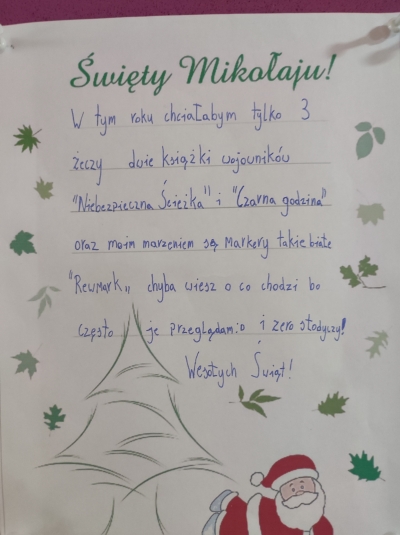 Święty Mikołaju!
W tym roku chciałabym tylko 3
żeczy dwie książki wojowników
"Niebezpieczna Ścieżka" i "Czarna godzina"
oraz moim marzeniem są Markery takie białe
"Rewmark„ chyba wiesz o co chodzi bo
często je przeglądam:o i zero słodyczy!
Wesołych Świąt!